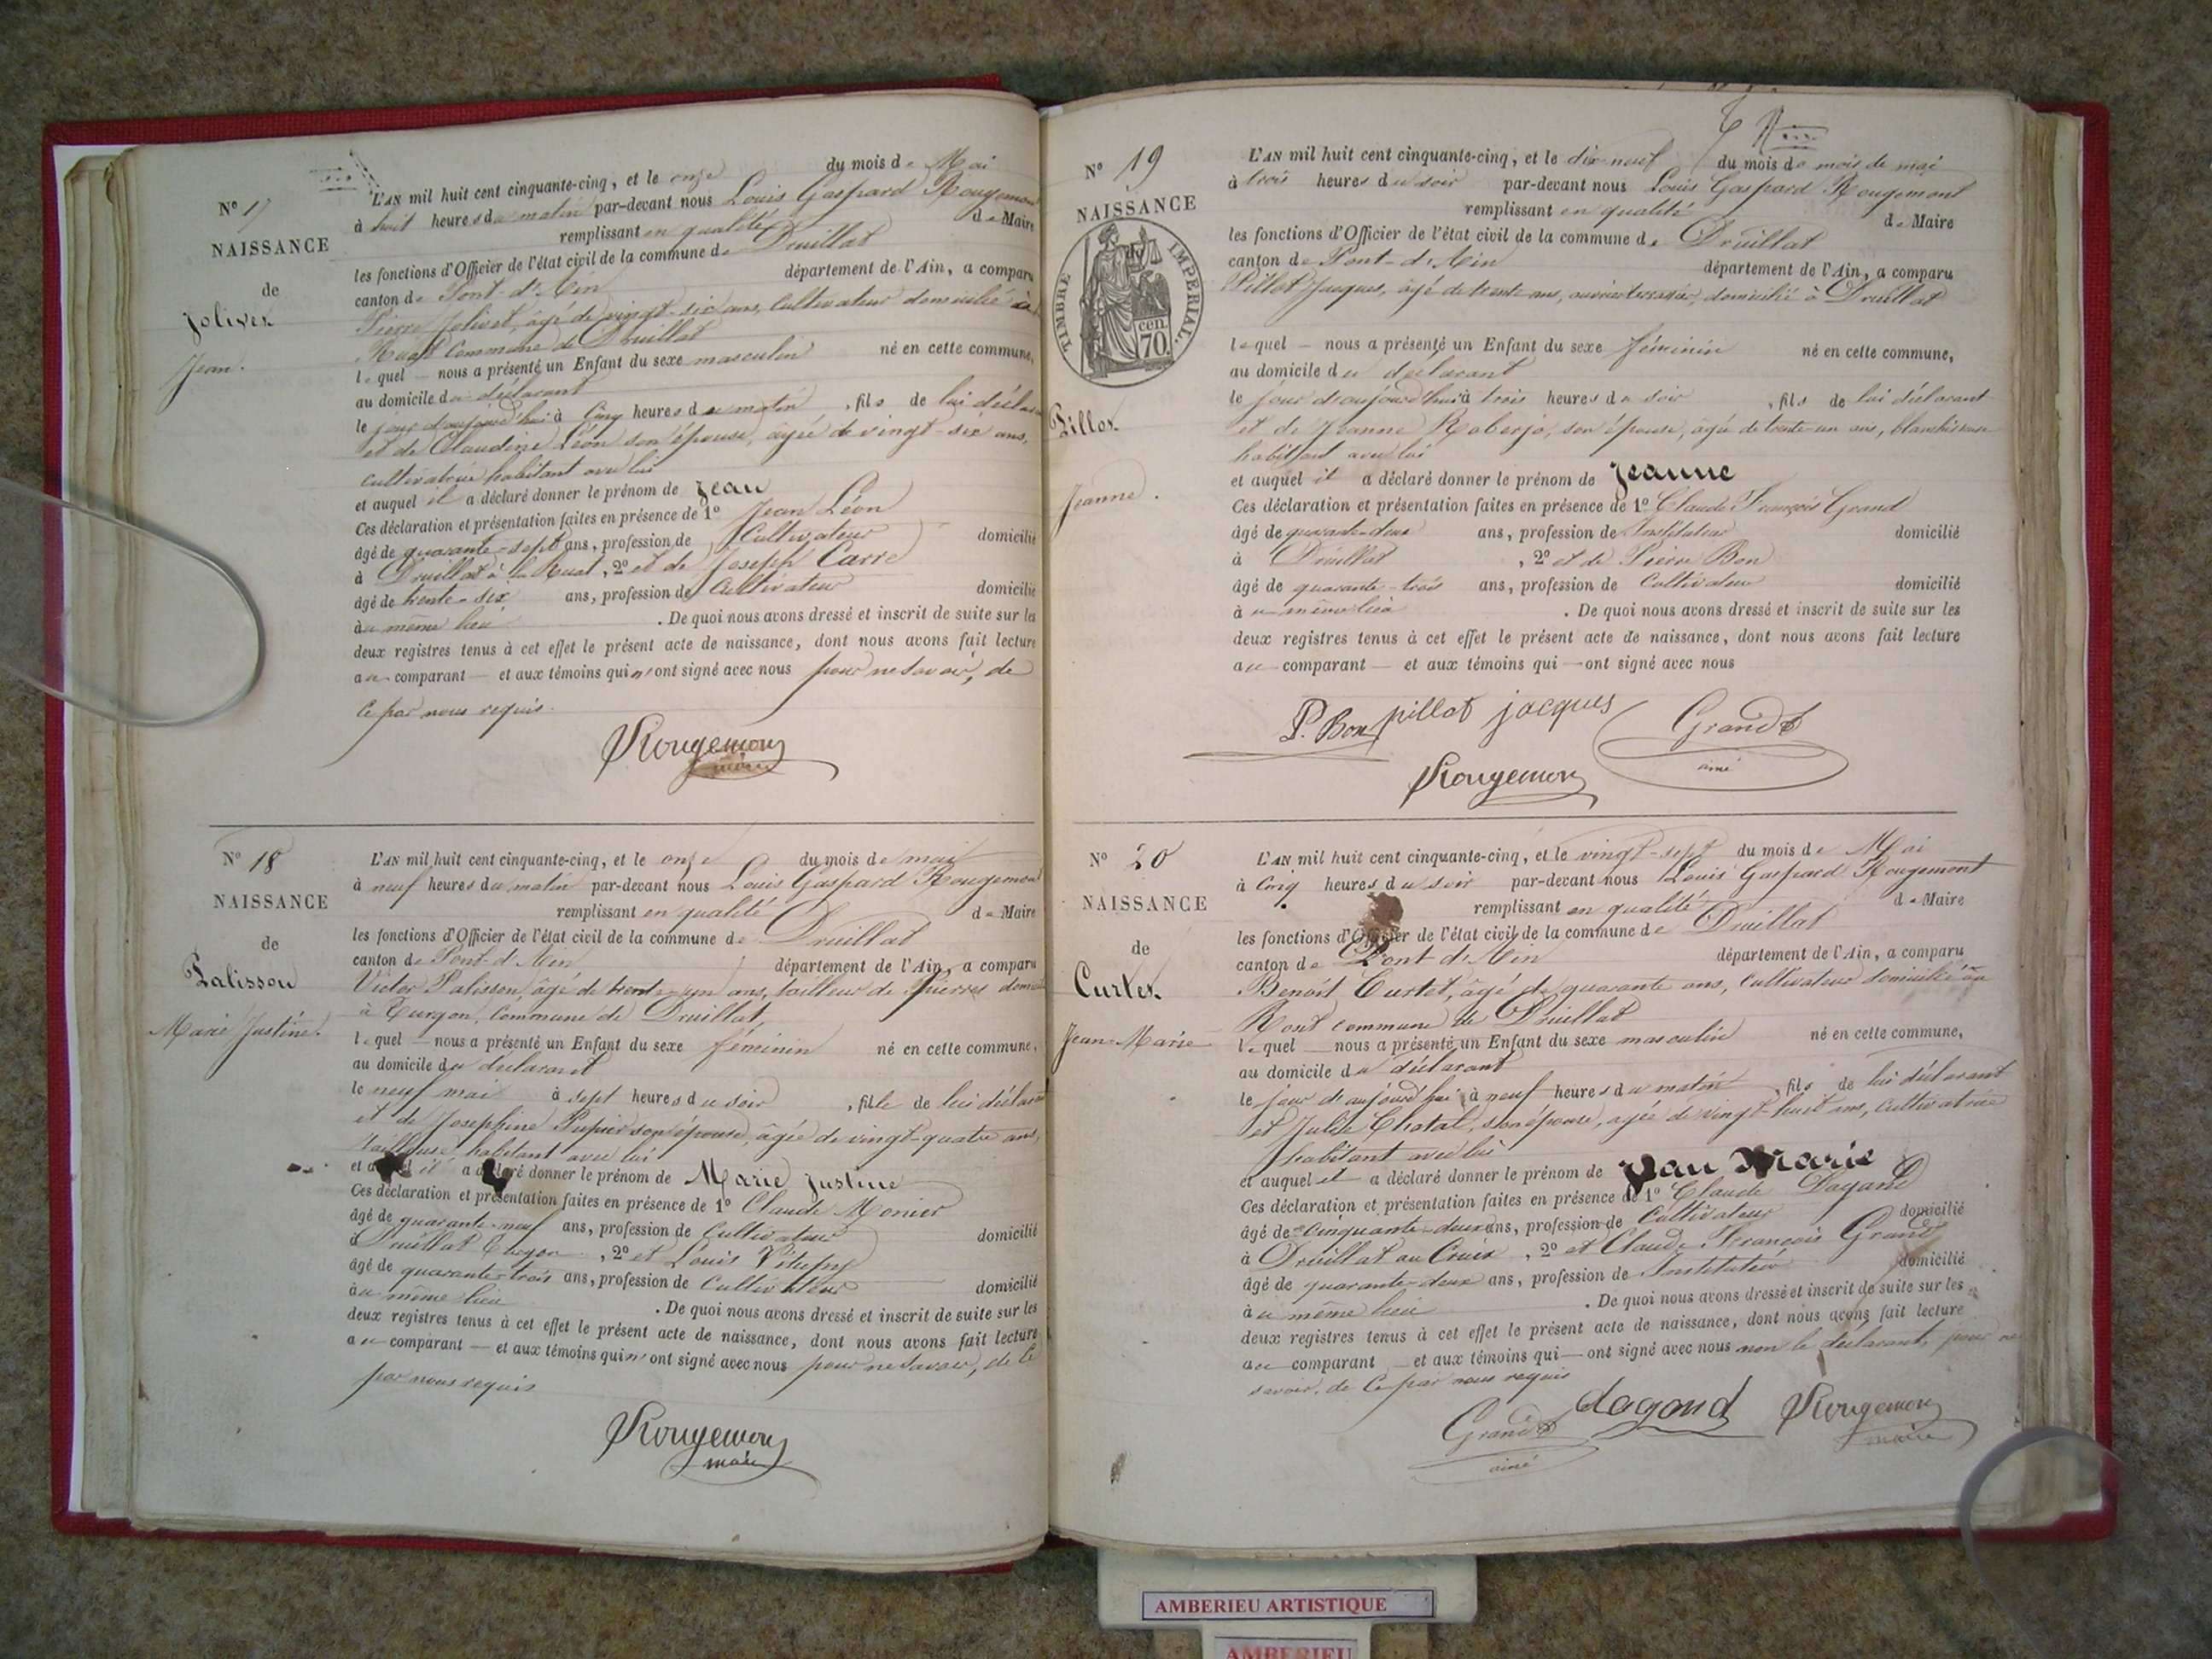 N° 17
NAISSANCE
de
Jolivet
Jean.
L'AN mil huit cent cinquante-cinq, et le onze du mois de Mai
à huit heures du matin par-devant nous Louis Gaspard Rougemont
remplissant en qualité de Maire
les fonctions d'Officier de l'état civil de la commune de Druillat
canton de Pont-d'Ain département de l'Ain, a comparu
Pierre Jolivet, âgé de vingt-six ans, Cultivateur domicilié
Commune de Druillat
lequel — nous a présenté un Enfant du sexe masculin né en cette commune,
au domicile du déclarant
le jour d'aujourd'hui à Cinq heures du matin, fils de lui
et de Claudine Léon son épouse, agée de vingt-six ans,
cultivatrice habitant avec lui
et auquel il a déclaré donner le prénom de Jean
Ces déclaration et présentation faites en présence de 1° Jean Léon
âgé de quarante-sept ans, profession de Cultivateur domicilié
à Druillat à la Ruat, 2° et de Joseph Carre
âgé de trente-six ans, profession de Cultivateur domicilié
au même lieu. De quoi nous avons dressé et inscrit de suite sur les
deux registres tenus à cet effet le présent acte de naissance, dont nous avons fait lecture
au comparant — et aux témoins qui n'ont signé avec nous pour ne savoir, de
ce par nous requis.
Rougemont
maire
N° 18
NAISSANCE
de
Palisson
Marie Justine.
L'AN mil huit cent cinquante-cinq, et le onze du mois de mai
à neuf heures du matin par-devant nous Louis Gaspard Rougemont
remplissant en qualité de Maire
les fonctions d'Officier de l'état civil de la commune de Druillat
canton de Pont-d'Ain département de l'Ain, a comparu
Victor Palisson, âgé de trente-un ans, tailleur de pierres
à Turgon, Commune de Druillat,
lequel — nous a présenté un Enfant du sexe féminin né en cette commune,
au domicile du déclarant
le neuf mai à sept heures du soir, fille de lui
et de Josephine Pupier son épouse, âgée de vingt-quatre ans,
habitant avec lui
et il a déclaré donner le prénom de Marie Justine
Ces déclaration et présentation faites en présence de 1° Claude Monier
âgé de quarante-neuf ans, profession de Cultivateur domicilié
à Druillat Turgon, 2° et Louis
âgé de quarante-trois ans, profession de Cultivateur domicilié
au même lieu. De quoi nous avons dressé et inscrit de suite sur les
deux registres tenus à cet effet le présent acte de naissance, dont nous avons fait lecture
au comparant — et aux témoins qui n'ont signé avec nous pour ne savoir, de ce
par nous requis
Rougemont
maire
N° 19
NAISSANCE
de
TIMBRE IMPÉRIAL.
70 cen.
Pillot
Jeanne.
L'AN mil huit cent cinquante-cinq, et le dix-neuf du mois de mois de mai
à trois heures du soir par-devant nous Louis Gaspard Rougemont
remplissant en qualité de Maire
les fonctions d'Officier de l'état civil de la commune de Druillat
canton de Pont-d'Ain département de l'Ain, a comparu
Pillot Jacques, âgé de trente ans, domicilié à Druillat
lequel — nous a présenté un Enfant du sexe féminin né en cette commune,
au domicile du declarant
le jour d'aujourd'hui à trois heures du soir, fils de lui déclarant
et de Jeanne Roberjo, son épouse, agée de trente-un ans, blanchisseuse
habitant avec lui
et auquel il a déclaré donner le prénom de Jeanne
Ces déclaration et présentation faites en présence de 1° Claude François Grand
âgé de quarante-deux ans, profession de Instituteur domicilié
à Druillat, 2° et de Pierre Bon
âgé de quarante-trois ans, profession de Cultivateur domicilié
au même lieu. De quoi nous avons dressé et inscrit de suite sur les
deux registres tenus à cet effet le présent acte de naissance, dont nous avons fait lecture
au comparant — et aux témoins qui — ont signé avec nous
P. Bon pillot jacques Grand
ainé
Rougemont
N° 20
NAISSANCE
de
Curtet
Jean-Marie
L'AN mil huit cent cinquante-cinq, et le vingt-sept du mois de Mai
à Cinq heures du soir par-devant nous Louis Gaspard Rougemont
remplissant en qualité de Maire
les fonctions d'Officier de l'état civil de la commune de Druillat
canton de Pont d'Ain département de l'Ain, a comparu
Benoît Curtet, âgé de quarante ans, Cultivateur domicilié au
commune de Druillat
lequel — nous a présenté un Enfant du sexe masculin né en cette commune,
au domicile du déclarant
le jour d'aujourd'hui à neuf heures du matin, fils de lui déclarant
et Julie Chatal, son épouse, agée de vingt-huit ans, cultivatrice
habitant avec lui
et auquel il a déclaré donner le prénom de Jean Marie
Ces déclaration et présentation faites en présence de 1° Claude Dagand
âgé de Cinquante-deux ans, profession de Cultivateur domicilié
à Druillat au Croix, 2° et Claude François Grand
âgé de quarante-deux ans, profession de Instituteur domicilié
au même lieu. De quoi nous avons dressé et inscrit de suite sur les
deux registres tenus à cet effet le présent acte de naissance, dont nous avons fait lecture
au comparant — et aux témoins qui — ont signé avec nous non le declarant, pour ne
savoir, de ce par nous requis
Grand dagand Rougemont
ainé maire
AMBERIEU ARTISTIQUE
AMBERIEU